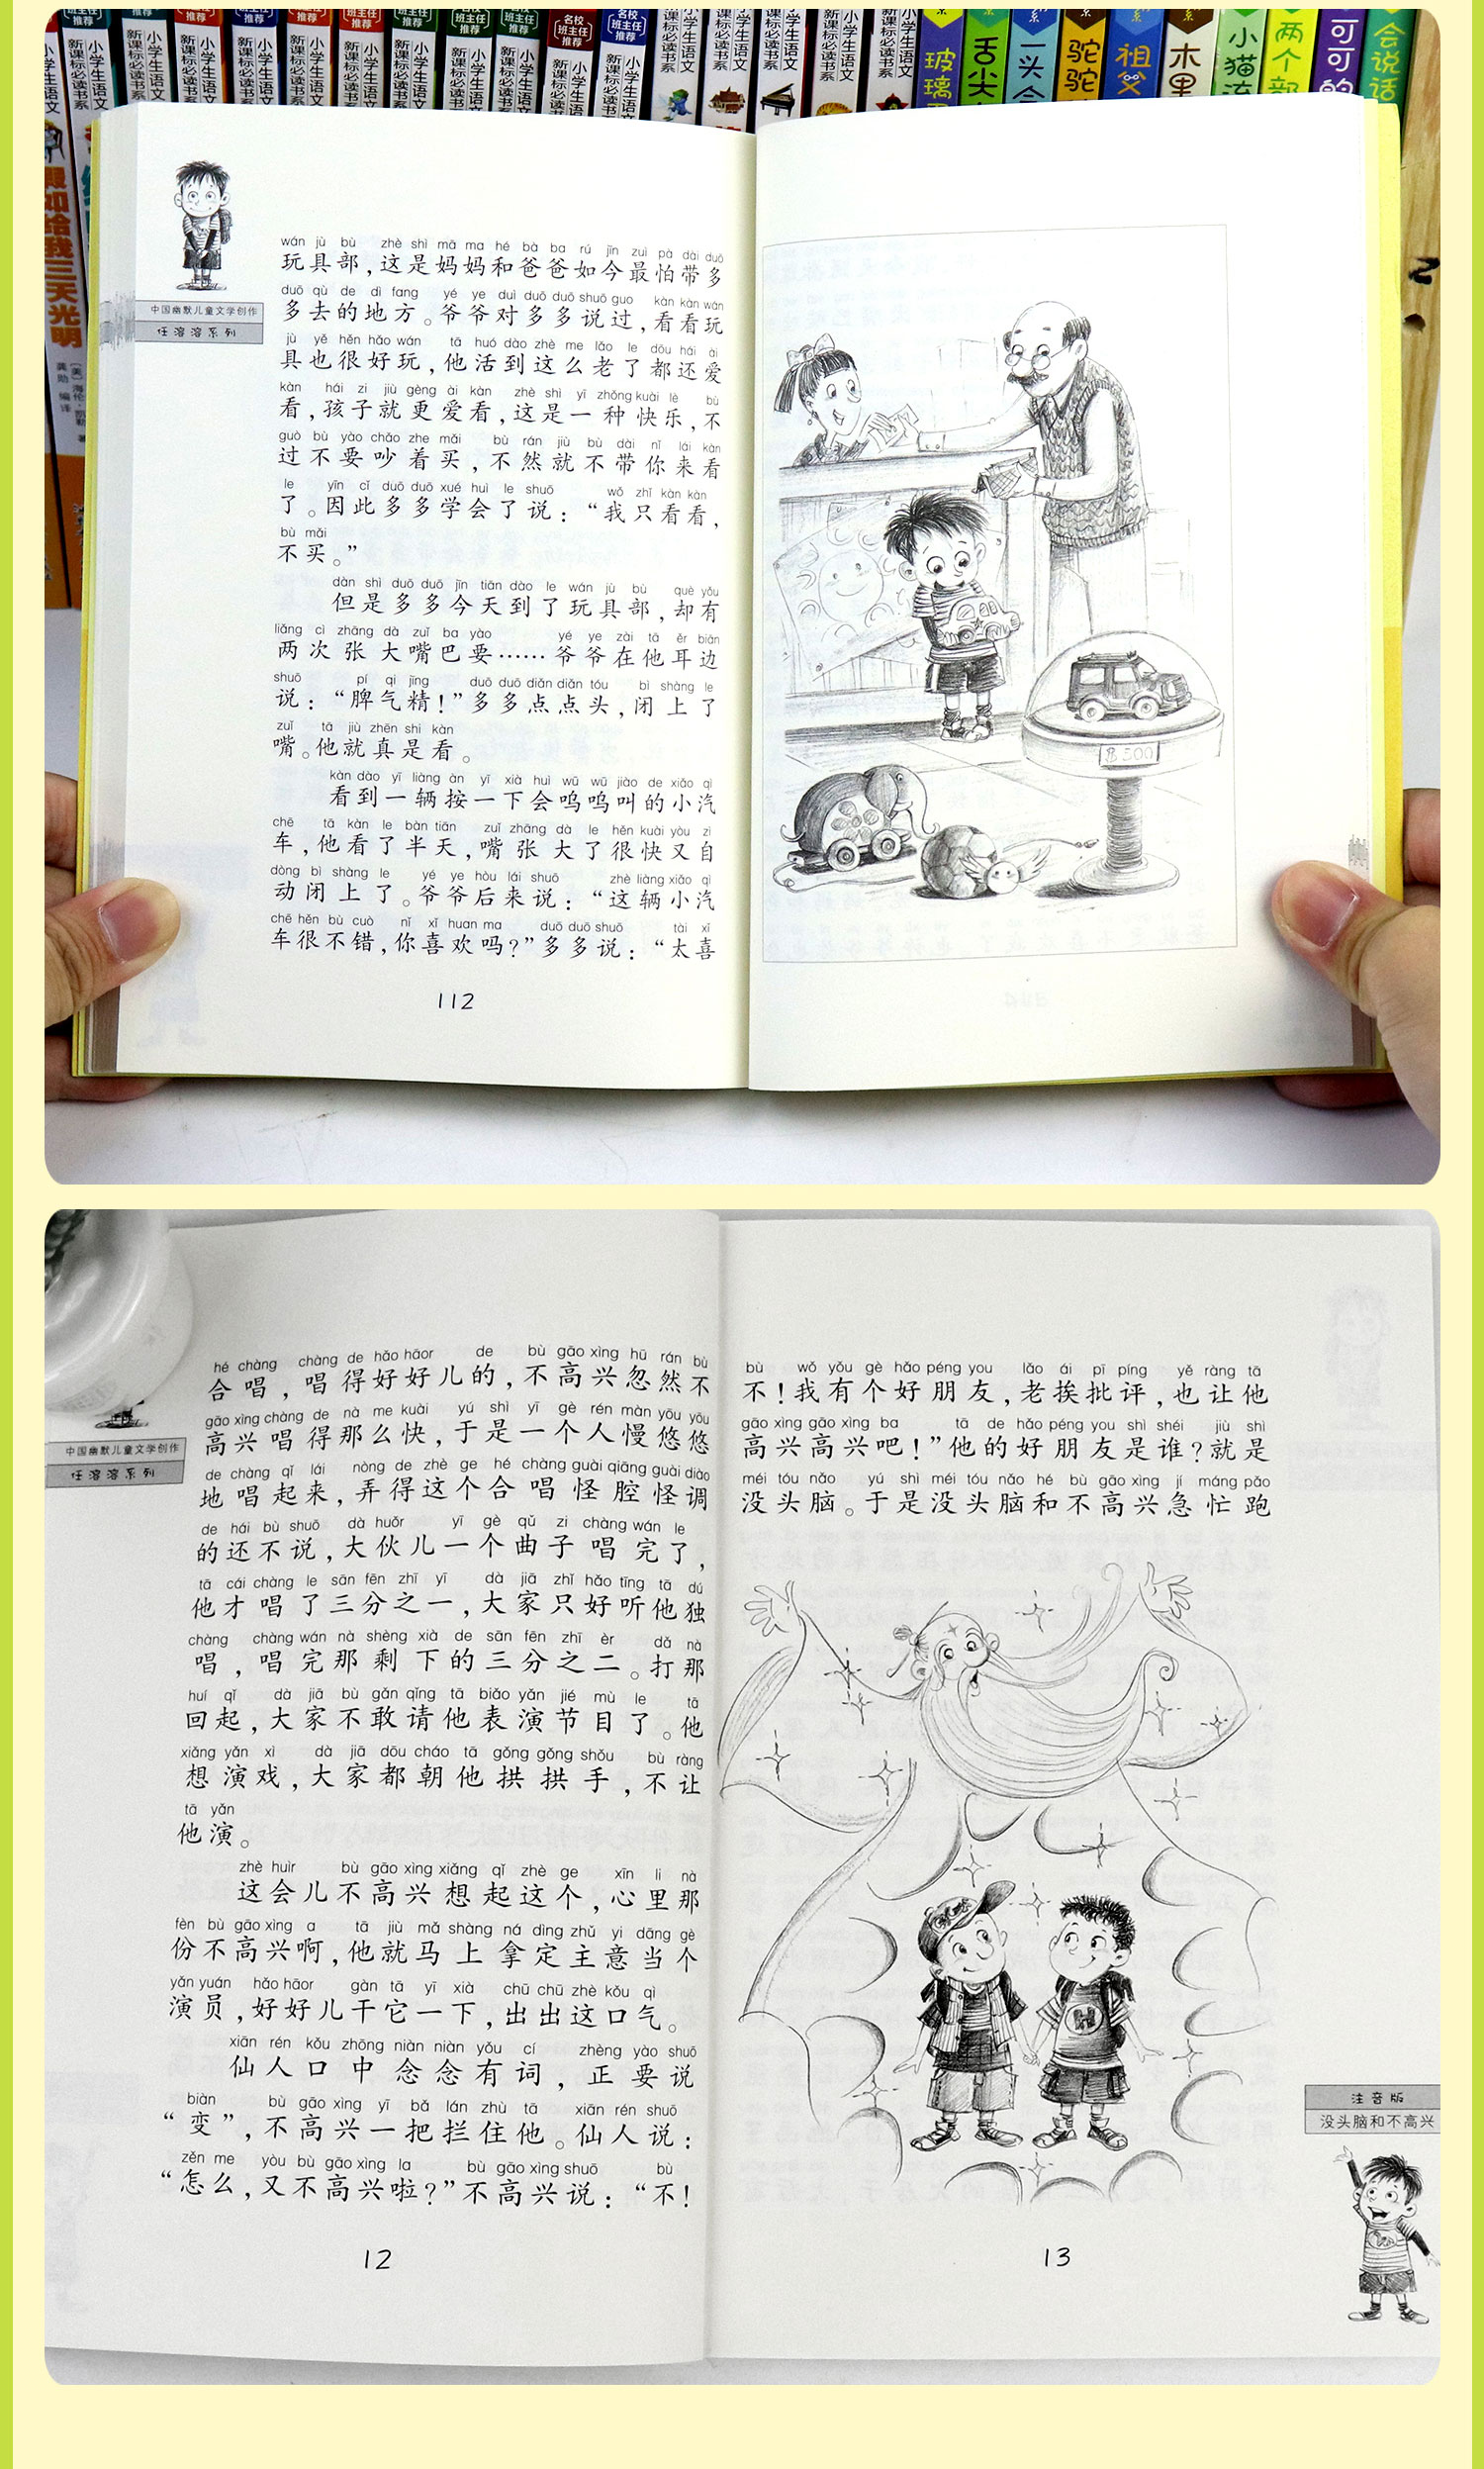 中国幽默儿童文学创作
任溶溶系列
wán jù bù zhè shì mā ma hé bà ba rú jīn zuì pà dài duō
玩具部，这是妈妈和爸爸如今最怕带多
duō qù de dì fang yé ye duì duō duō shuō guo kàn kàn wán
多去的地方。爷爷对多多说过，看看玩
jù yě hěn hǎo wán tā huó dào zhè me lǎo le dōu hái ài
具也很好玩，他活到这么老了都还爱
kàn hái zi jiù gèng ài kàn zhè shì yī zhǒng kuài lè bù
看，孩子就更爱看，这是一种快乐，不
guò bù yào chǎo zhe mǎi bù rán jiù bù dài nǐ lái kàn
过不要吵着买，不然就不带你来看
le yīn cǐ duō duō xué huì le shuō wǒ zhǐ kàn kàn
了。因此多多学会了说：“我只看看，
bù mǎi
不买。”
dàn shì duō duō jīn tiān dào le wán jù bù què yǒu
但是多多今天到了玩具部，却有
liǎng cì zhāng dà zuǐ ba yào yé ye zài tā ěr biān
两次张大嘴巴要……爷爷在他耳边
shuō pí qi jīng duō duō diǎn diǎn tóu bì shàng le
说：“脾气精！”多多点点头，闭上了
zuǐ tā jiù zhēn shi kàn
嘴。他就真是看。
kàn dào yī liàng àn yī xià huì wū wū jiào de xiǎo qì
看到一辆按一下会呜呜叫的小汽
chē tā kàn le bàn tiān zuǐ zhāng dà le hěn kuài yòu zì
车，他看了半天，嘴张大了很快又自
dòng bì shàng le yé ye hòu lái shuō zhè liàng xiǎo qì
动闭上了。爷爷后来说：“这辆小汽
chē hěn bù cuò nǐ xǐ huan ma duō duō shuō tài xǐ
车很不错，你喜欢吗？”多多说：“太喜
112
500
中国幽默儿童文学创作
任溶溶系列
hé chàng chàng de hǎo hāor de bù gāo xìng hū rán bù
合唱，唱得好好儿的，不高兴忽然不
gāo xìng chàng de nà me kuài yú shì yī gè rén màn yōu yōu
高兴唱得那么快，于是一个人慢悠悠
de chàng qǐ lái nòng de zhè ge hé chàng guài qiāng guài diào
地唱起来，弄得这个合唱怪腔怪调
de hái bù shuō dà huǒr yī gè qǔ zi chàng wán le
的还不说，大伙儿一个曲子唱完了，
tā cái chàng le sān fēn zhī yī dà jiā zhǐ hǎo tīng tā dú
他才唱了三分之一，大家只好听他独
chàng chàng wán nà shèng xià de sān fēn zhī èr dǎ nà
唱，唱完那剩下的三分之二。打那
huí qǐ dà jiā bù gǎn qǐng tā biǎo yǎn jié mù le tā
回起，大家不敢请他表演节目了。他
xiǎng yǎn xì dà jiā dōu cháo tā gǒng gǒng shǒu bù ràng
想演戏，大家都朝他拱拱手，不让
tā yǎn
他演。
zhè huìr bù gāo xìng xiǎng qǐ zhè ge xīn li nà
这会儿不高兴想起这个，心里那
fèn bù gāo xìng a tā jiù mǎ shàng ná dìng zhǔ yi dāng gè
份不高兴啊，他就马上拿定主意当个
yǎn yuán hǎo hāor gàn tā yī xià chū chū zhè kǒu qì
演员，好好儿干它一下，出出这口气。
xiān rén kǒu zhōng niàn niàn yǒu cí zhèng yào shuō
仙人口中念念有词，正要说
biàn bù gāo xìng yī bǎ lán zhù tā xiān rén shuō
“变”，不高兴一把拦住他。仙人说：
zěn me yòu bù gāo xìng la bù gāo xìng shuō bù
“怎么，又不高兴啦？”不高兴说：“不！
12
bù wǒ yǒu gè hǎo péng you lǎo ái pī píng yě ràng tā
不！我有个好朋友，老挨批评，也让他
gāo xìng gāo xìng ba tā de hǎo péng you shì shéi jiù shì
高兴高兴吧！”他的好朋友是谁？就是
méi tóu nǎo yú shì méi tóu nǎo hé bù gāo xìng jí máng pǎo
没头脑。于是没头脑和不高兴急忙跑
注音版
没头脑和不高兴
13